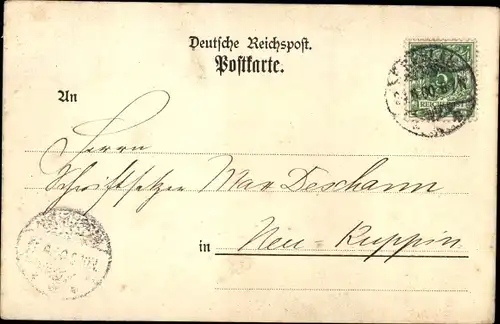 Deutsche Reichspost.
Postkarte.
An
Herrn
Schriftsetzer Max Deschann
in Neu-Ruppin
REICHSPOST